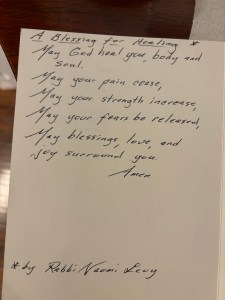 A Blessing for Healing *
May God heal you, body and
soul.
May your pain cease,
May your strength increase,
May your fears be released,
May blessings, love, and
joy surround you.
Amen
* by Rabbi Naomi Levy